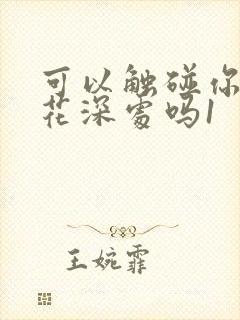 可以触碰你
花深处吗1
王婉霏